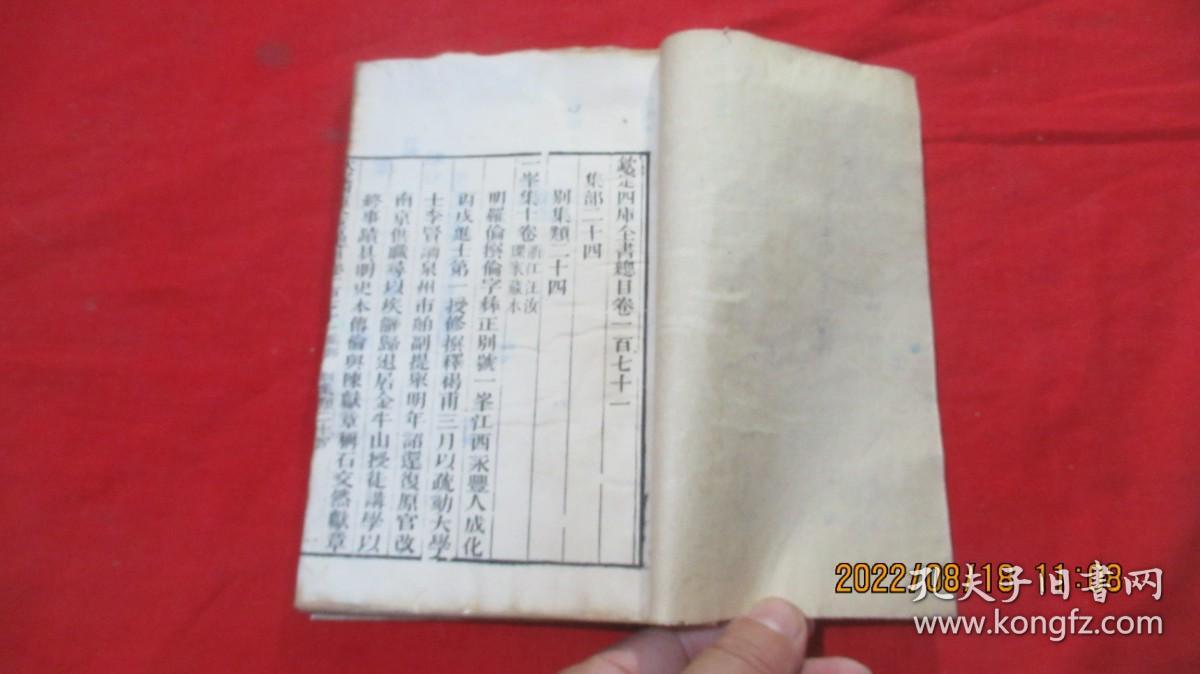 欽定四庫全書總目卷一百七十一
集部二十四
別集類二十四
一峯集十卷浙江汪汝瑮家藏本
明羅倫撰倫字彝正別號一峯江西永豐人成化
丙戌進士第一授修撰釋褐甫三月以疏劾大學
士李賢謫泉州市舶副提舉明年詔還復原官改
南京供職尋以疾辭歸退居金牛山授徒講學以
終事蹟具明史本傳倫與陳獻章稱石交然獻章
2022/08/18 11:
孔夫子旧书网
www.kongfz.com